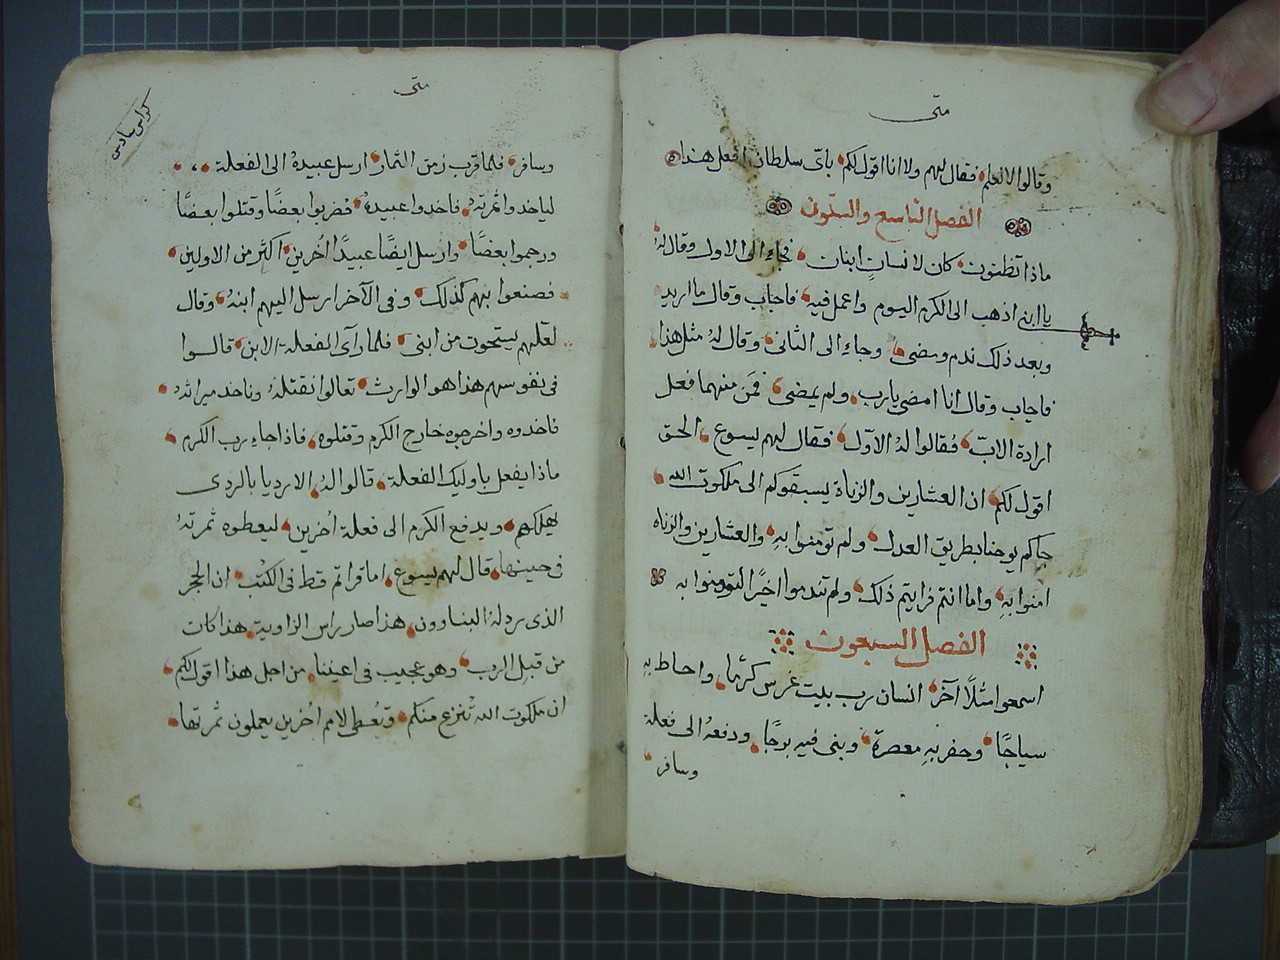 متى
وقالوا لا نعلم فقال لهم ولا انا اقول لكم باى سلطان افعل هذا
الفصل التاسع والستون
ماذا تظنون كان لانسان ابنان فجاء الى الاول وقال له
يا ابنى اذهب الى الكرم اليوم واعمل فيه فاجاب وقال ما اريد
وبعد ذلك ندم ومضى وجاء الى الثانى وقال لهُ مثل هذا
فاجاب وقال انا امضى يارب ولم يمضى فمَن منهما فعل
ارادة الاب فقالوا لهُ الاوّل فقال لهم يسوع الحق
اقول لكم ان العشارين والزناة يسبقوكم الى ملكوت الله
جاكم يوحنا بطريق العدل ولم تومنوا بهِ والعشارين والزناه
امنوا بهِ واما انتم فرايتم ذلك ولم تندموا اخيرًا لتومنوا به
الفصل السبعون
اسمعوا مثلاً آخر انسان رب بيت غرس كرمًا واحاط بهِ
سياجًا وحفر بهِ معصرة وبنى فيه برجًا ودفعهُ الى فعلة
وسافر
متى
كراس سادس
وسافر فلما قرب زمن الثمار ارسل عبيدهُ الى الفعلة
لياخدوا ثمرتهُ فاخدوا عبيدهُ فضربوا بعضًا وقتلوا بعضًا
ورجموا بعضًا وارسل ايضًا عبيدًا اخرين اكثر من الاولين
فصنعوا بهم كذلك وفى الآخر ارسل اليهم ابنهُ وقال
لعلهم يستحون من ابنى فلما رآى الفعلة الابن قالوا
فى نفوسهم هذا هو الوارث تعالوا نقتلهُ وناخد ميراثهُ
فاخدوه واخرجوه خارج الكرم وقتلوه فاذا جاء رب الكرم
ماذا يفعل باوليك الفعلة قالوا لهُ الارديا بالردى
يهلكهم ويدفع الكرم الى فعلة اخرين ليعطوه ثمرتهُ
فى حينها قال لهم يسوع اما قراتم قط فى الكتب ان الحجر
الذى رذلهُ البناوون هذا صار راس الزاوية هذا كان
من قبل الرب وهو عجيب فى اعيننا من اجل هذا اقول لكم
ان ملكوت الله تُنزع منكم وتُعطى لامم اُخرين يعملون ثمرتها